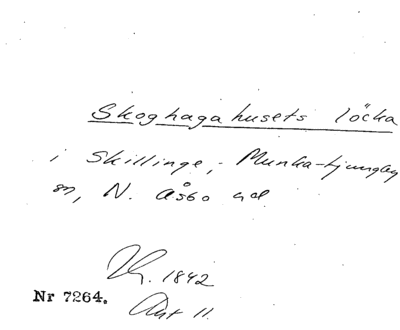 Skoghagahusets löcka
i Skillinge, Munka-Ljungby
sn, N. Åsbo hd
1842
Nr 7264.
Akt 11.